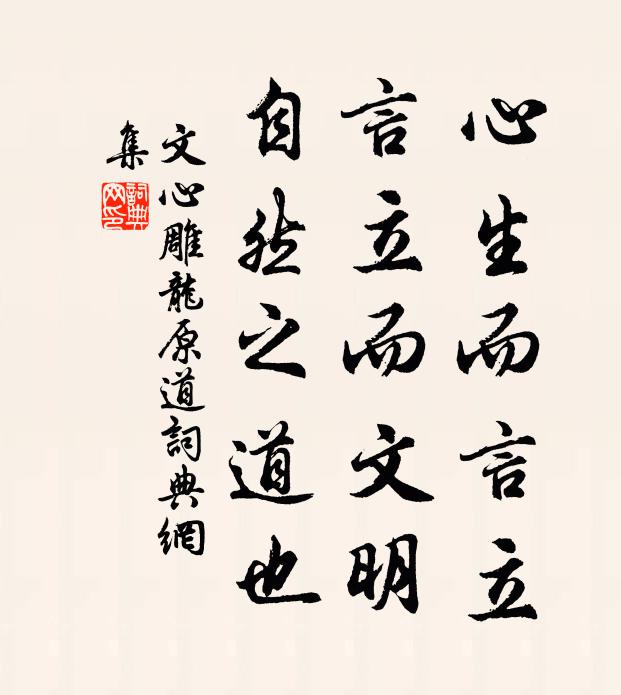 心生而言立
言立而文明
自然之道也
文心雕龍原道詞典網
集
詞典網印